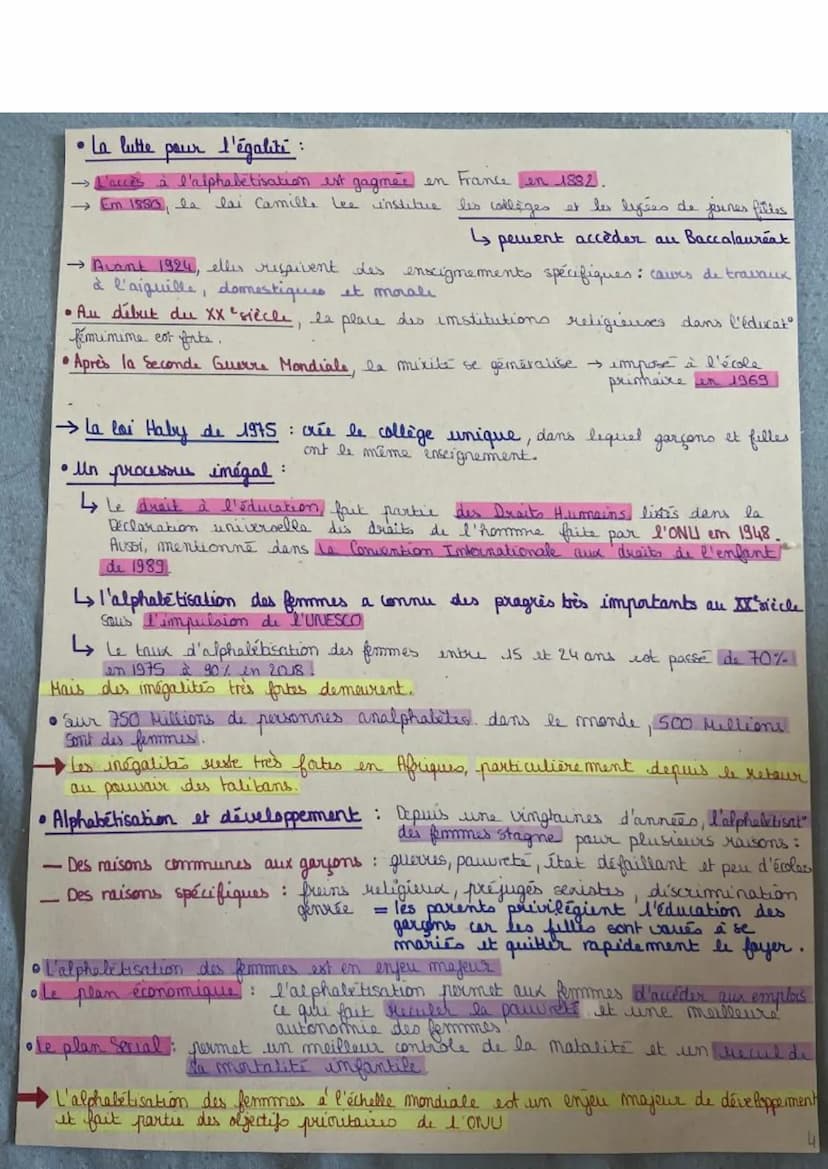 • La lutte pour l'égalité :
→ L'accès à l'alphabétisation est gagnée en France en 1882.
→ En 1880, la loi Camille Lee institue les collèges et les lycées de jeunes filles
↳ peuvent accèder au Baccalauréat
→ Avant 1924, elles reçoivent des enseignements spécifiques : cours de travaux
à l'aiguille, domestiques et morale
• Au début du XXe siècle, la place des institutions religieuses dans l'éducat°
féminime est forte.
• Après la Seconde Guerre Mondiale, la mixité se généralise → imposé à l'école
primaire en 1969
→ La loi Haby de 1975 : crée le collège unique, dans lequel garçons et filles
ont le même enseignement.
• Un processus inégal :
↳ Le droit à l'éducation fait partie des Droits Humains listés dans la
Déclaration universelle des droits de l'homme faite par l'ONU en 1948.
Aussi, mentionné dans la Convention Internationale aux droits de l'enfant
de 1989
↳ l'alphabétisation des femmes a connu des progrès très importants au XXe siècle
sous l'impulsion de l'UNESCO
↳ Le taux d'alphabétisation des femmes entre 15 et 24 ans est passé de 70%
en 1975 à 90% en 2018.
Mais des inégalités très fortes demeurent.
• Sur 750 Millions de personnes analphabètes dans le monde, 500 Millions
sont des femmes.
→ Les inégalités reste très fortes en Afriques, particulièrement depuis le retour
au pouvoir des talibans.
• Alphabétisation et développement : Depuis une vingtaines d'années, l'alphabétisat°
des femmes stagne pour plusieurs raisons :
— Des raisons communes aux garçons : guerres, pauvreté, état défaillant et peu d'écoles
— Des raisons spécifiques : freins religieux, préjugés sexistes, discrimination
genrée = les parents privilégient l'éducation des
garçons car les filles sont voués à se
mariés et quitter rapidement le foyer.
• L'alphabétisation des femmes est en enjeu majeur
• Le plan économique : l'alphabétisation permet aux femmes d'accéder aux emplois
ce qui fait reculer la pauvreté et une meilleure
autonomie des femmes
• Le plan Social : permet un meilleur contrôle de la natalité et un recul de
la mortalité infantile
→ L'alphabétisation des femmes à l'échelle mondiale est un enjeu majeur de développement
et fait partie des objectifs prioritaires de l'ONU
4